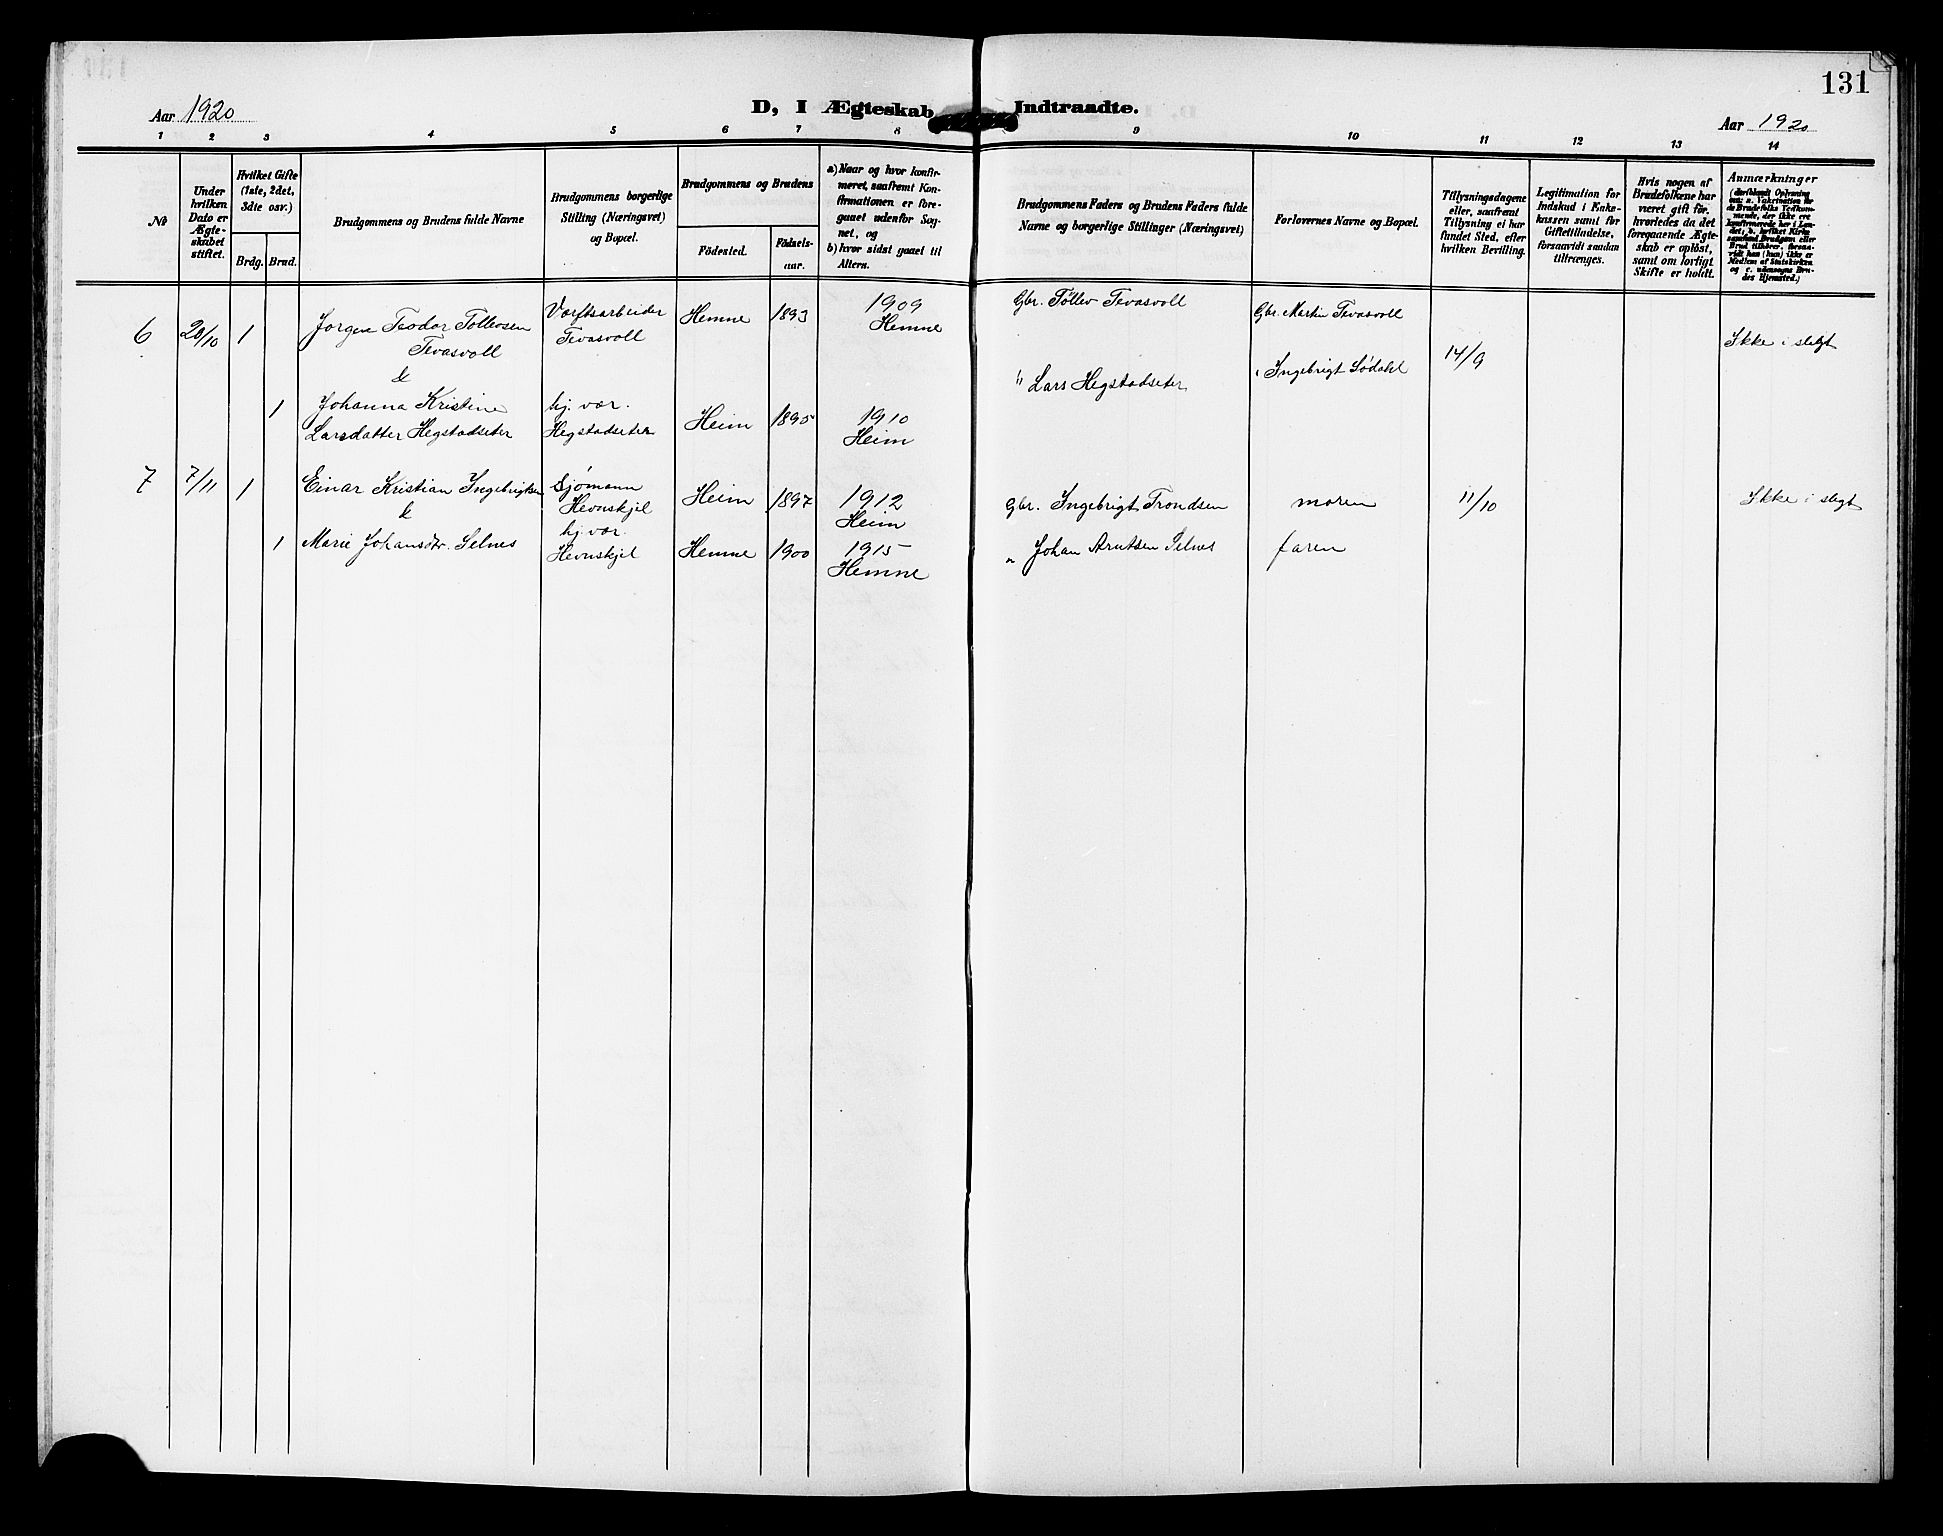 131
Aar 1920
D, I Ægteskab Indtraadte.
Aar 1920
1 2 3 4 5 6 7 8 9 10 11 12 13 14
No
Under hvilken Dato er Ægteskabet stiftet.
Hvilket Gifte (1ste, 2det, 3die osv.)
Brdg. Brud.
Brudgommens og Brudens fulde Navne
Brudgommens borgerlige Stilling (Næringsvei) og Bopæl.
Brudgommens og Brudens
Födested.
Födselsaar.
a) Naar og hvor konfirmeret, saafremt Konfirmationen er foregaaet udenfor Sognet, og
b) hvor sidst gaaet til Alters.
Brudgommens Faders og Brudens Faders fulde Navne og borgerlige Stillinger (Næringsvei)
Forlovernes Navne og Bopæl.
Tillysningsdagene eller, saafremt Tillysning ei har fundet Sted, efter hvilken Bevilling.
Legitimation for Indskud i Enkekassen samt for Giftetilladelse, forsaavidt saadan tiltrænges.
Hvis nogen af Brudefolkene har været gift för, hvorledes da det foregaaende Ægteskab er oplöst, samt om lovligt Skifte er holdt.
Anmærkninger
6 23/10 1 Jorgen Teodor Tollevsen Værftsarbeider Hemne 1893 1909 Gbr. Tøllev Tevasvoll Gbr. Martin Tevasvoll
Tevasvoll Tevasvoll Hemne Ikke i slegt
&
" Lars Hegstadseter " Ingebrigt Södahl 14/9
1 Johanna Kristine hj. vær. Heim 1895 1910
Larsdatter Hegstadseter Hegstadseter Heim
7 7/11 1 Einar Kristian Ingebrigtsen Sjømann Heim 1897 1912 Gbr. Ingebrigt Trondsen moren 11/10 Ikke i slegt
& Hevnskjel Heim
1 Marie Johansdtr. Selnes hj. vær. Hemne 1900 1915 " Johan Arntsen Selnes faren
Hevnskjel Hemne